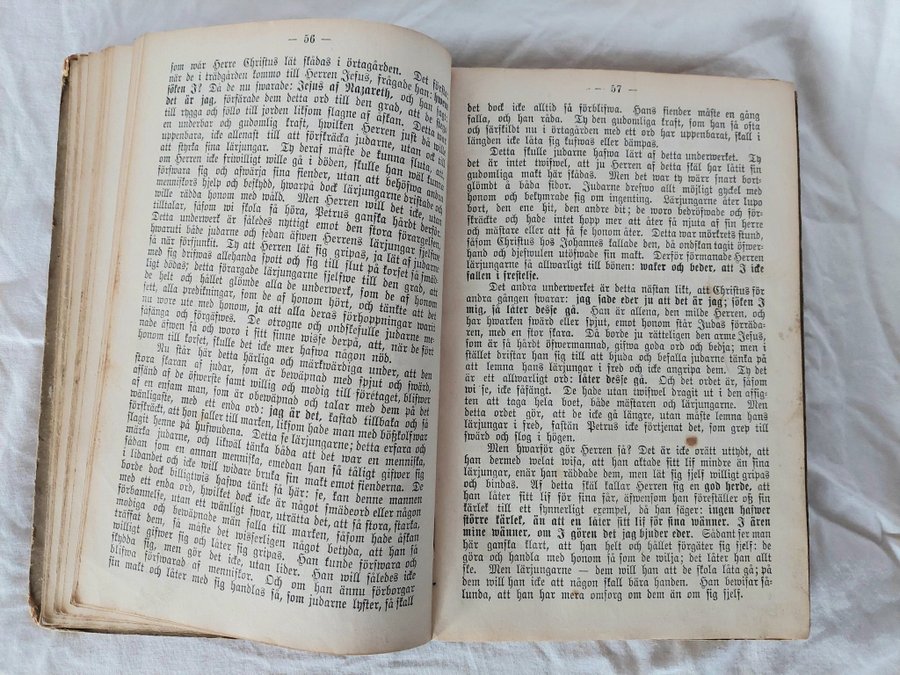 — 56 —
som wår Herre Christus lät skådas i örtagården. Det
när de i trädgården kommo till Herren Jesus, frågade han: hwem
söken I? Då de nu swarade: Jesus af Nazareth, och han
det är jag, förfärade dem detta ord till den grad, att de
till rygga och föllo till jorden liksom slagne af åskan. Detta
en underbar och gudomlig kraft, hwilken Herren just då wille
uppenbara, icke allenast till att förskräcka judarne, utan ock till
att styrka sina lärjungar. Ty deraf måste de kunna sluta, att
om Herren icke friwilligt wille gå i döden, skulle han wäl kunna
förswara sig och afwärja sina fiender, utan att behöfwa andra
menniskors hjelp och beskydd, hwarpå dock lärjungarne dristade och
wille rädda honom med wåld. Men Herren will det icke, utan
tilltalar, såsom wi skola få höra, Petrus ganska hårdt derför.
Detta underwerk är således nyttigt emot den stora förargelsen,
hwaruti både judarne och sedan äfwen Herrens lärjungar sjelfwe
så när försjunkit. Ty att Herren lät sig gripas, ja lät af judarne
med sig drifwas allehanda spott och sig till slut på korset så smäd-
ligt dödas; detta förargade lärjungarne sjelfwe till den grad, att
de helt och hållet glömde alla de underwerk, som de af honom
sett, alla predikningar, som de af honom hört, och tänkte att det
nu wore ute med honom, ja att alla deras förhoppningar warit
fåfänga och förgäfwes. De otrogne och ondskefulle judarne me-
nade äfwen så och woro i sitt sinne wisse derpå, att, när de fört
honom till korset, skulle det icke mer hafwa någon nöd.
Nu står här detta härliga och märkwärdiga under, att den
stora skaran af judar, som är bewäpnad med spjut och swärd,
afsänd af de öfwerste samt willig och modig till företaget, blifwer
af en ensam man, som är obewäpnad och talar med dem på det
wänligaste, med ett enda ord: jag är det, kastad tillbaka och så
förskräckt, att hon faller till marken, liksom hade man med bösskolfwar
slagit henne på hufwudena. Detta se lärjungarne; detta erfara och
märka judarne, och likwäl tänka båda att det war en menniska,
sådan som en annan menniska, emedan han så tåligt gifwer sig
lidandet och icke will widare bruka sin makt emot fienderna. De
borde dock billigtwis hafwa tänkt så här: se, kan denne mannen
med ett enda ord, hwilket dock icke är något smädeord eller någon
förbannelse, utan ett wänligt swar, uträtta det, att så stora, starka,
modiga och bewäpnade män falla till marken, såsom hade åskan
träffat dem, så måste det wisserligen något betyda, att han så
willigt gifwer sig och låter sig gripas. Han kunde förswara och
skydda sig, men gör det icke, utan lider. Han will således icke
blifwa förswarad af menniskor. Och om han ännu förborgar
sin makt och låter med sig handlas så, som judarne lyster, så skall
— 57 —
det dock icke alltid så förblifwa. Hans fiender måste en gång
falla, och han råda. Ty den gudomliga kraft, som han så ofta
och särskildt nu i örtagården med ett ord har uppenbarat, skall i
längden icke låta sig kufwas eller dämpas.
Detta skulle judarne hafwa lärt af detta underwerket. Ty
det är intet twifwel, att ju Herren af detta skäl har låtit sin
gudomliga makt här skådas. Men det war ty wärr snart bort-
glömdt å båda sidor. Judarne drefwo allt möjligt gyckel med
honom och bekymrade sig om ingenting. Lärjungarne åter lupo
bort, den ene hit, den andre dit; de woro bedröfwade och för-
skräckte och hade intet hopp mer att åter få njuta af sin herre
och mästare eller att få se honom åter. Detta war mörkrets stund,
såsom Christus hos Johannes kallade den, då ondskan tagit öfwer-
hand och djefwulen utöfwade sin makt. Derför förmanade Herren
lärjungarne så allwarligt till bönen: waker och beder, att I icke
fallen i frestelse.
Det andra underwerket är detta nästan likt, att Christus för
andra gången swarar: jag sade eder ju att det är jag; söken I
mig, så låter desse gå. Han är allena, den milde Herren, och
har hwarken swärd eller spjut, emot honom står Judas förräda-
ren, med en stor skara. Då borde ju rätteligen den arme Jesus,
som är så hårdt öfwermannad, gifwa goda ord och bedja; men i
stället dristar han sig till att bjuda och befalla judarne tänka på
att lemna hans lärjungar i fred och icke angripa dem. Ty det
är ett allwarligt ord: låter desse gå. Och det ordet är, såsom
wi se, icke fåfängt. De hade utan twifwel dragit ut i den afsig-
ten att taga hela boet, både mästaren och lärjungarne. Men
detta ordet gör, att de icke gå längre, utan måste lemna hans
lärjungar i fred, fastän Petrus icke förtjenat det, som grep till
swärd och slog i högen.
Men hwarför gör Herren så? Det är icke orätt uttydt, att
han dermed welat wisa, att han aktade sitt lif mindre än sina
lärjungar, enär han räddade dem, men lät sig sjelf willigt gripas
och bindas. Af detta skäl kallar Herren sig en god herde, att
han låter sitt lif för sina får, äfwensom han föreställer oss sin
kärlek till ett synnerligt exempel, då han säger: ingen hafwer
större kärlek, än att en låter sitt lif för sina wänner. I ären
mine wänner, om I gören det jag bjuder eder. Sådant ser man
här ganska klart, att han helt och hållet förgäter sig sjelf: de
göra och handla med honom så som de wilja; det låter han allt
ske. Men lärjungarne — dem will han att de skola låta gå; på
dem will han icke att någon skall bära handen. Han bewisar så-
lunda, att han har mera omsorg om dem än om sig sjelf.